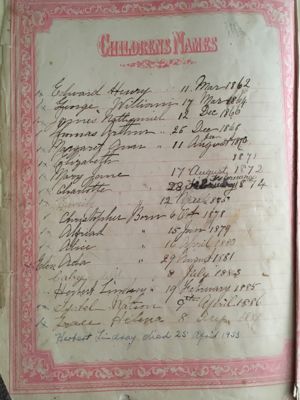 CHILDRENS NAMES
Edward Henry 11 Mar 1862
George William 17 Mar 1864
James Nathaniel 12 Dec 1866
Thomas Arthur 26 Dec 1868
Margaret Ann 11 August 1870
Elizabeth 1871
Mary Jane 17 August 1872
Charlotte 28 February 1874
12
Christopher Born 6 Oct 1878
" 15 Jan 1879
Alice " 16 April 1880
Ada " 29 August 1881
Baby 8 July 1883
Herbert Lindsay 19 February 1885
Watson 9th April 1886
Grace Helena 8
Herbert Lindsay died 25 April 1953